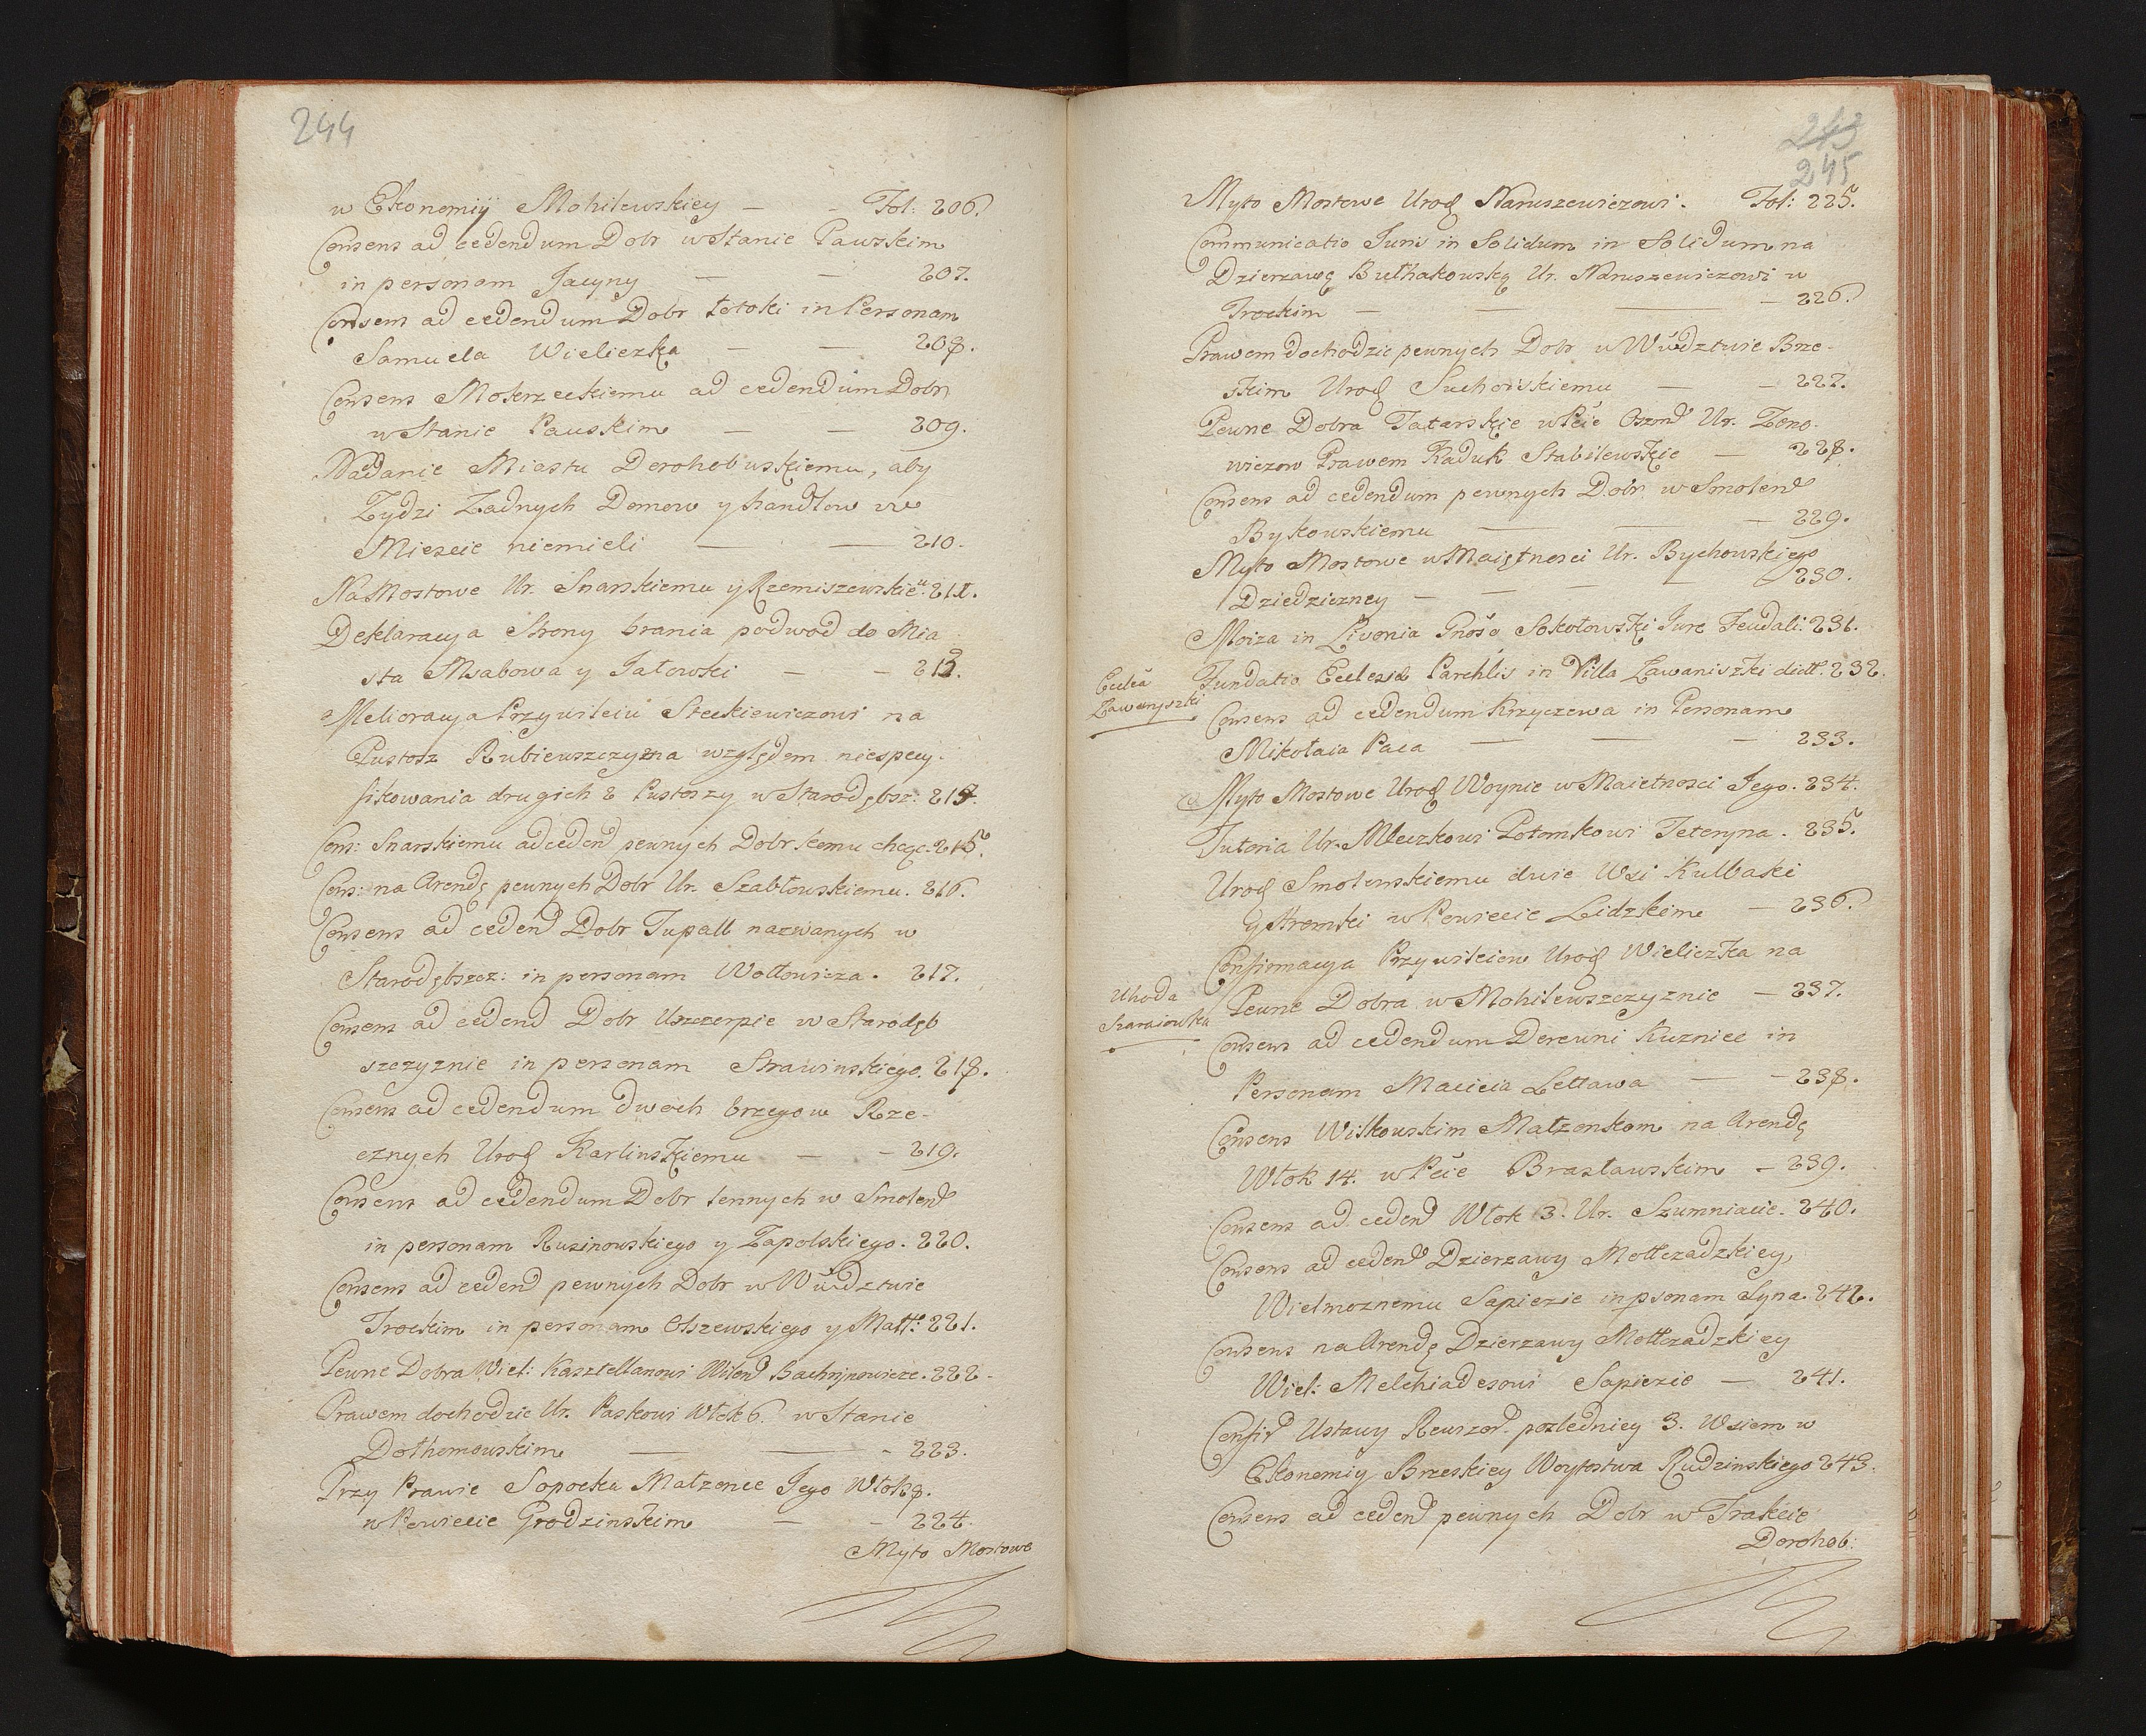 244
w Ekonomiÿ Mohilewskiey — - Fol: 206.
Consens ad cedendum Dobr w Stanie Pawskim
in personam Jacyny — — 207.
Consens ad cedendum Dobr Łotoki in Personam
Samuela Wieliczka — — 208.
Consens Mokrzeckiemu ad cedendum Dobr
w Stanie Pauskim — — 209.
Nadanie Miastu Dorohobuskiemu, aby
Zydzi Zadnych Domow y handlow w
Miescie niemieli — — 210.
Na Mostowe Ur. Snarskiemu y Rzemiszewskie.u 211.
Deklaracya Strony brania podwod do Mia
sta Msabowa y Jałowki — - 213.
Melioracya Przywileiu Steckiewiczowi na
Pustosz Rubieuszczyzna względem niespecy-
fikowania drugich 2 Pustoszy w Starodębsz: 214.
Cons: Snarskiemu ad cedend pewnych Dobr komu chcąc. 215.
Cons: na Arendę pewnych Dobr Ur. Szabłowskiemu. 216.
Consens ad cedend Dobr Tupall nazwanych w
Starodębszcz: in personam Wołłowicza. 217.
Consens ad cedend Dobr Uszczerpie w Starodęb
szczyznie in personam Strawinskiego. 218.
Consens ad cedendum dwoch brzegow Rze-
cznych Urod Karlinskiemu — - 219.
Consens ad cedendum Dobr lennych w Smolend
in personam Rusinowskiego y Zapolskiego. 220.
Consens ad cedend pewnych Dobr w Wudztwie
Trockim in personam Olszewskiego y Matt: 221.
Pewne Dobra Wiel: Kasztellanowi Wilend Bachrynowicze. 222.
Prawem dochodzic Ur. Paskowi Włok 6. w Stanie
Dołhomowskim — — - 223.
Przy Prawie Sopocka Małzonce Jego Włok 8.
w Powiecie Grodzinskim — - 224.
Myto Mostowe
243
245
Myto Mostowe Urod Naruszewiczowi. Fol: 225.
Communicatio Juris in Solidum in Solidum na
Dzierzawę Bułhakowską Ur. Naruszewiczowi w
Trockim — — — 226.
Prawem dochodzic pewnych Dobr w Wudztwie Brze-
skim Urod Suchorskiemu — - 227.
Pewne Dobra Tatarskie w Pcie Oszmd Ur. Zeno-
wiczow Prawem Kaduk Stabilewskie — 228.
Consens ad cedendum pewnych Dobr w Smolend
Bykowskiemu — — 229.
Myto Mostowe w Maiętnosci Ur. Bychowskiego
Dziedziczney — — — 230.
Moiza in Livonia Gnoso Sokołowski Jure Feudali. 231.
Ecclea
Ławaryszki
Fundatio Ecclesiæ Parchlis in Villa Ławaniszki dictt. 232.
Consens ad cedendum Krzyczewa in Personam
Mikołaia Paca — — - 233.
Myto Mostowe Urod Woynie w Maietnosci Jego. 234.
Tutoria Ur. Mleczkowi Potomkowi Teteryna. 235.
Urod Smolenskiemu dwie Wsi Kulbaki
y Stremki w Powiecie Lidzkim — 236.
Confirmacya Przywileiow Urod Wieliczka na
Uhoda
Szaraiowka
Pewne Dobra w Mohilewszczyznie — 237.
Consens ad cedendum Derewni Kuznice in
Personam Macieia Lettawa — - 238.
Consens Wilkowskim Małzonkom na Arendę
Włok 14. w Pcie Brasławskim - 239.
Consens ad cedend Włok 3. Ur. Szumniacie. 240.
Consens ad cedend Dzierzawy Mołczadzkiey,
Wielmoznemu Sapiezie in psonam Syna. 242.
Consens na Arendę Dzierzawy Mołczadzkiey
Wiel: Melchiadesowi Sapiezie — 241.
Confir Ustawy Rewizor. posledniey 3. Wsiem w
Ekonomiy Brzeskiey Woytostwa Rudzinskiego 243.
Consens ad cedend pewnych Dobr w Trakcie
Dorohob: